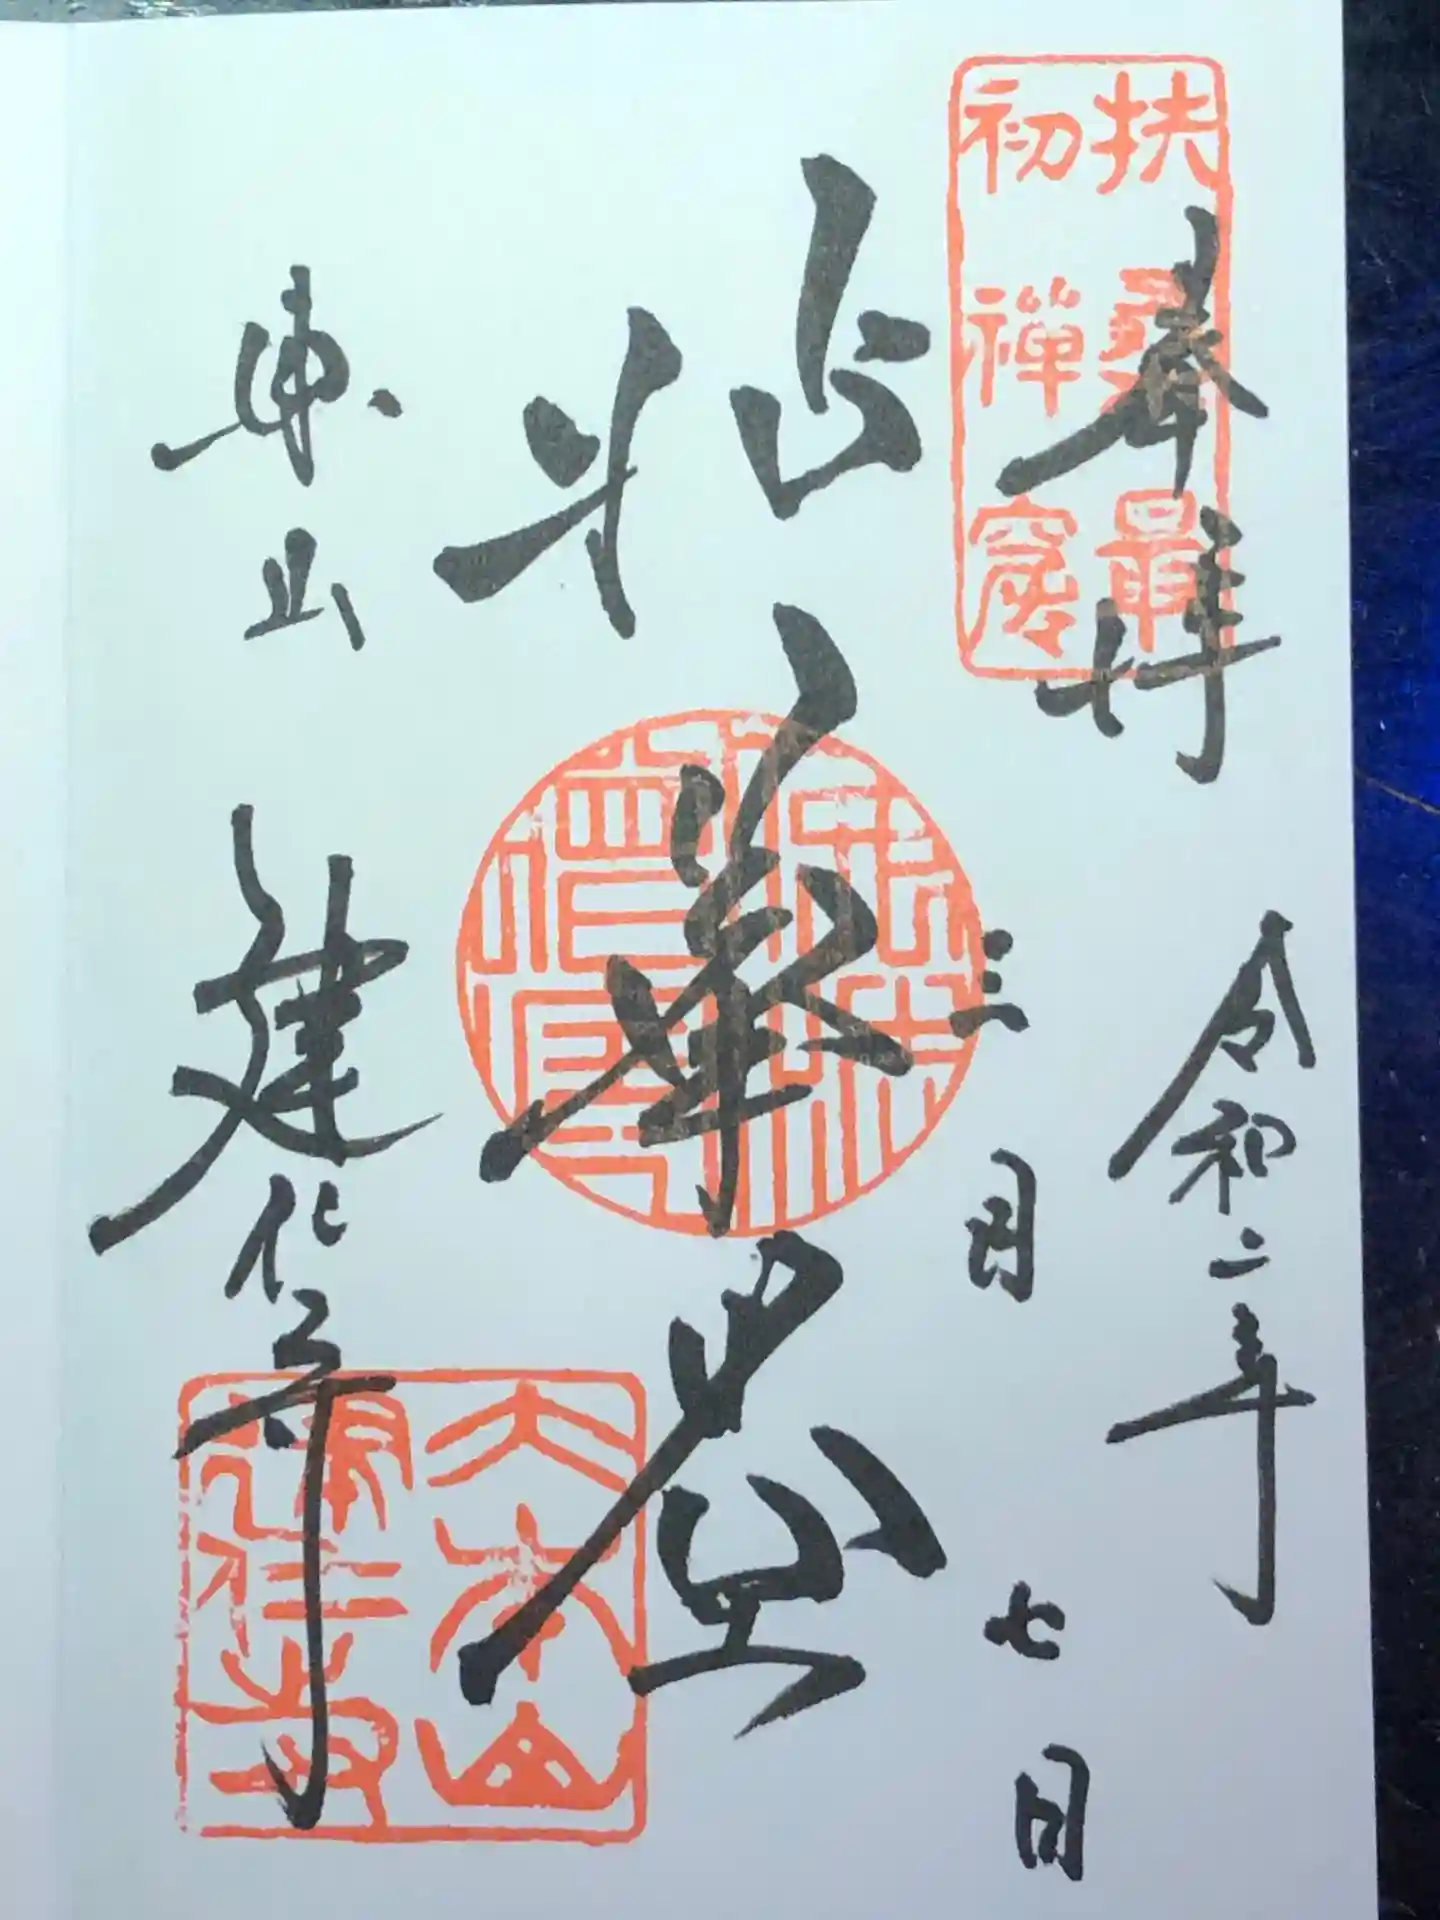 扶桑最
初禪窟
奉拝
令和二年
三月七日
拈華堂
佛法
僧寶
東山
建仁寺
大本山
建仁寺